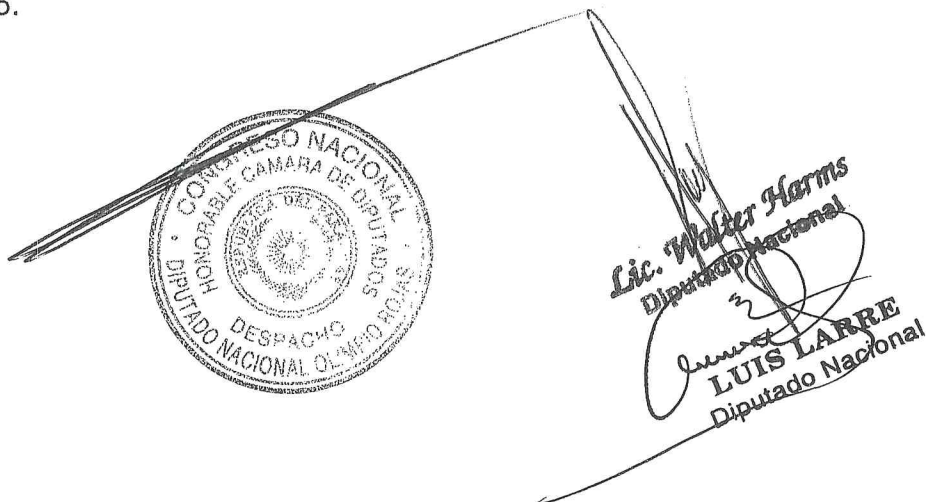 o.
CONGRESO NACIONAL
HONORABLE CAMARA DE DIPUTADOS
REPUBLICA DEL
DESPACHO
DIPUTADO NACIONAL OLIMPIO ROJAS
Lic. Walter Harms
Diputado Nacional
LUIS LARRE
Diputado Nacional